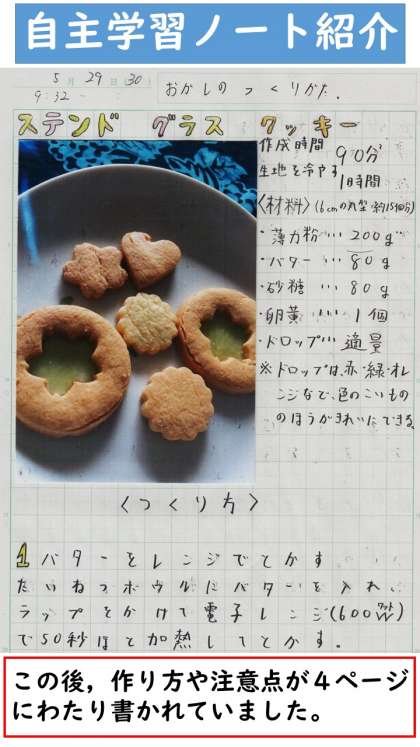 自主学習ノート紹介
5月29日(30)
9:32 ~ :
おかしのつくりかた.
ステンド グラス クッキー
作成時間 90分
生地を冷やす 1時間
〈材料〉(6cmの丸型・約15個分)
・薄力粉…200g
・バター…80g
・砂糖…80g
・卵黄…1個
・ドロップ…適量
※ドロップは、赤・緑・オレ
ンジなで、色のこいもの
のほうがきれいにできる。
〈つくり方〉
1 バターをレンジでとかす
たいねつボウルにバターを入れ、
ラップをかけて電子レンジ(600Wワット)
で50秒ほど加熱してとかす。
この後，作り方や注意点が４ページ
にわたり書かれていました。